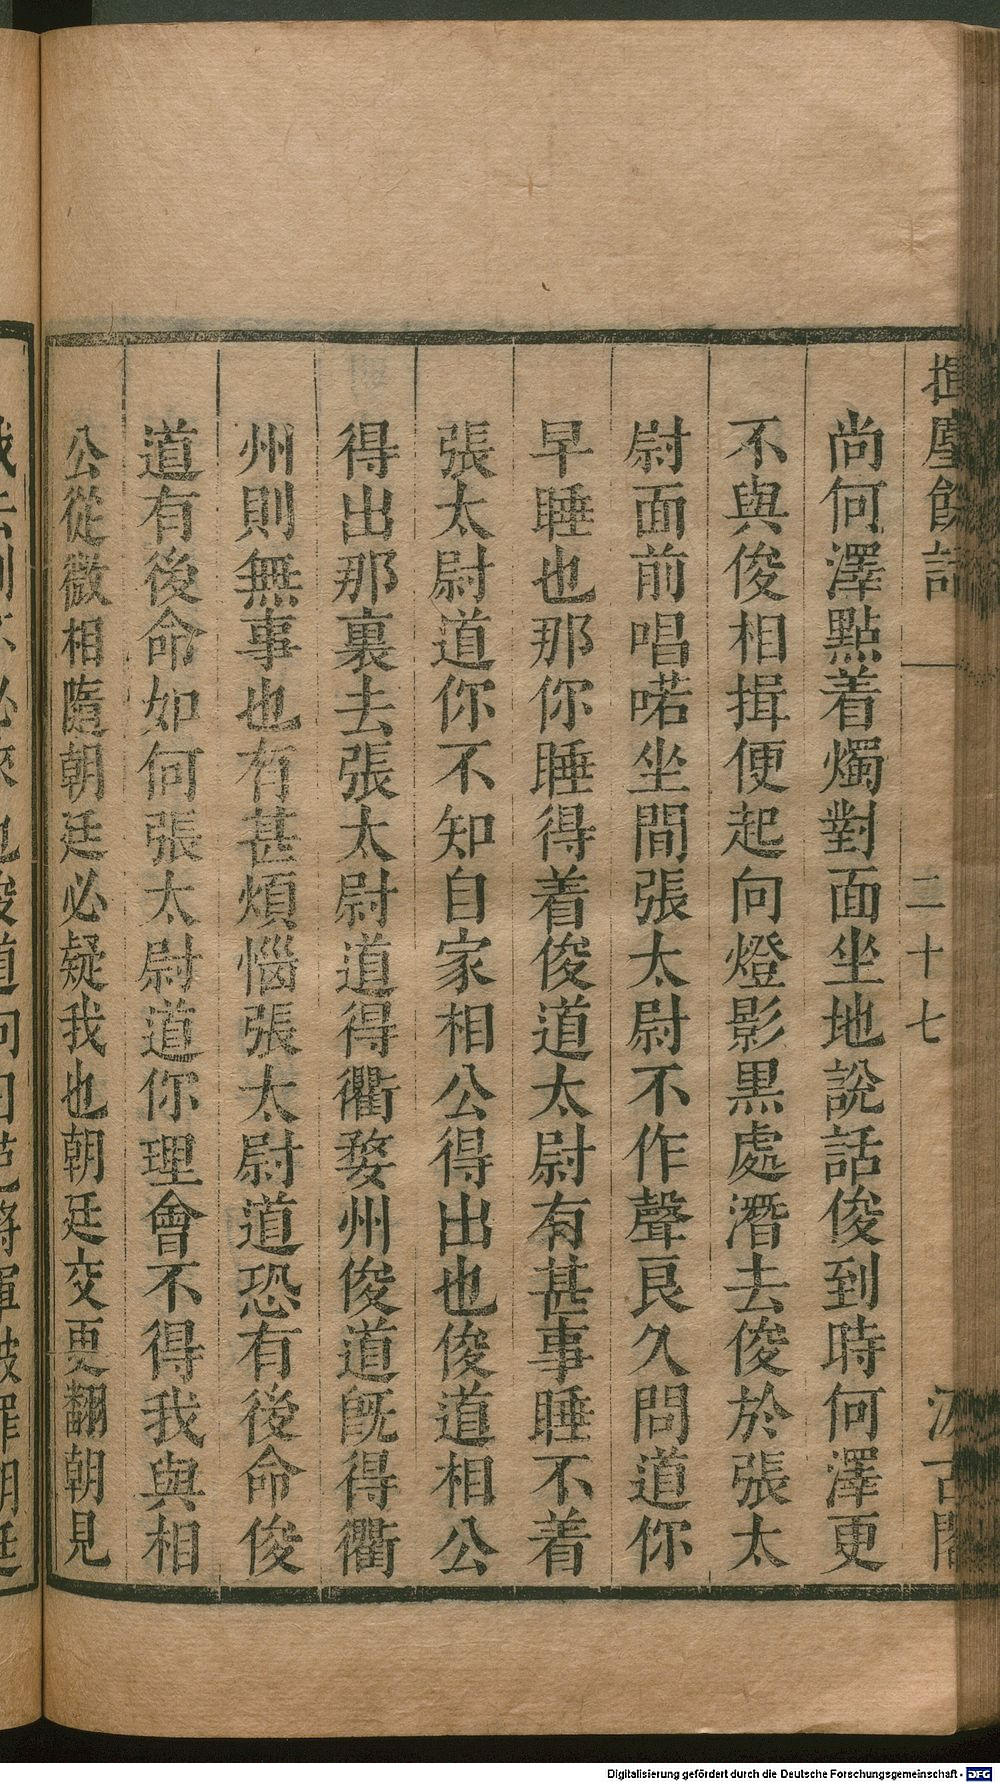 揮麈餘話 二十七 汲古閣
尚何澤點着燭對面坐地說話俊到時何澤更
不與俊相揖便起向燈影黑處潛去俊於張太
尉面前唱喏坐間張太尉不作聲良久問道你
早睡也那你睡得着俊道太尉有甚事睡不着
張太尉道你不知自家相公得出也俊道相公
得出那裏去張太尉道得衢婺州俊道旣得衢
州則無事也有甚煩惱張太尉道恐有後命俊
道有後命如何張太尉道你理會不得我與相
公從微相隨朝廷必疑我也朝廷交更翻朝見
Digitalisierung gefördert durch die Deutsche Forschungsgemeinschaft - DFG